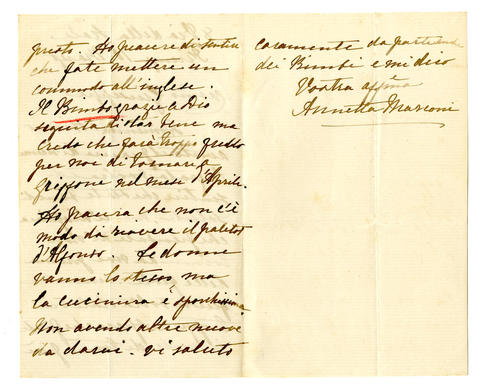 presto. Ho piacere di sentire
che fate mettere un
commodo all'inglese.
Il Bimbo grazie a Dio
seguita di star bene ma
credo che farà troppo freddo
per noi di tornare a
Griffone nel mese d'Aprile.
Ho paura che non c'è
modo di riavere il paletot
d'Alfonso. Le donne
vanno lo stesso, ma
la cuciniera è sporchissima
Non avendo altre nuove
da darvi. vi saluto
caramente da parte
dei Bimbi e mi dico
Vostra affma
Annetta Marconi